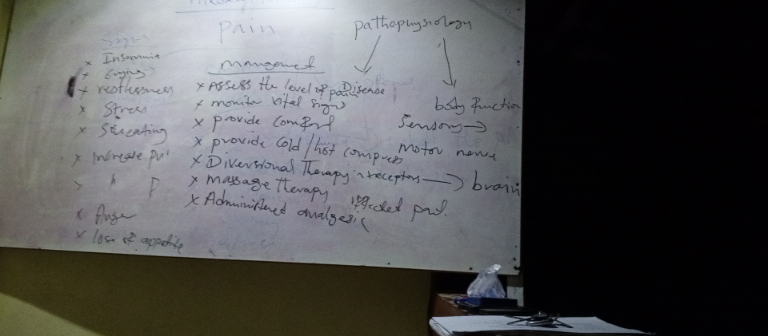 pain
pathophysiology
Signs
× Insomnia
× Crying
× restlessness
× Stress
× Sweating
× Increase pul
× " P
× Anger
× loss of appetite
management
× Assess the level of pain
× monitor vital signs
× provide comfort
× provide cold/hot compress
× Diversional Therapy
× massage Therapy
× Administered analgesic
Disease
body function
Sensory →
motor nerve
receptors → brain
affected part.